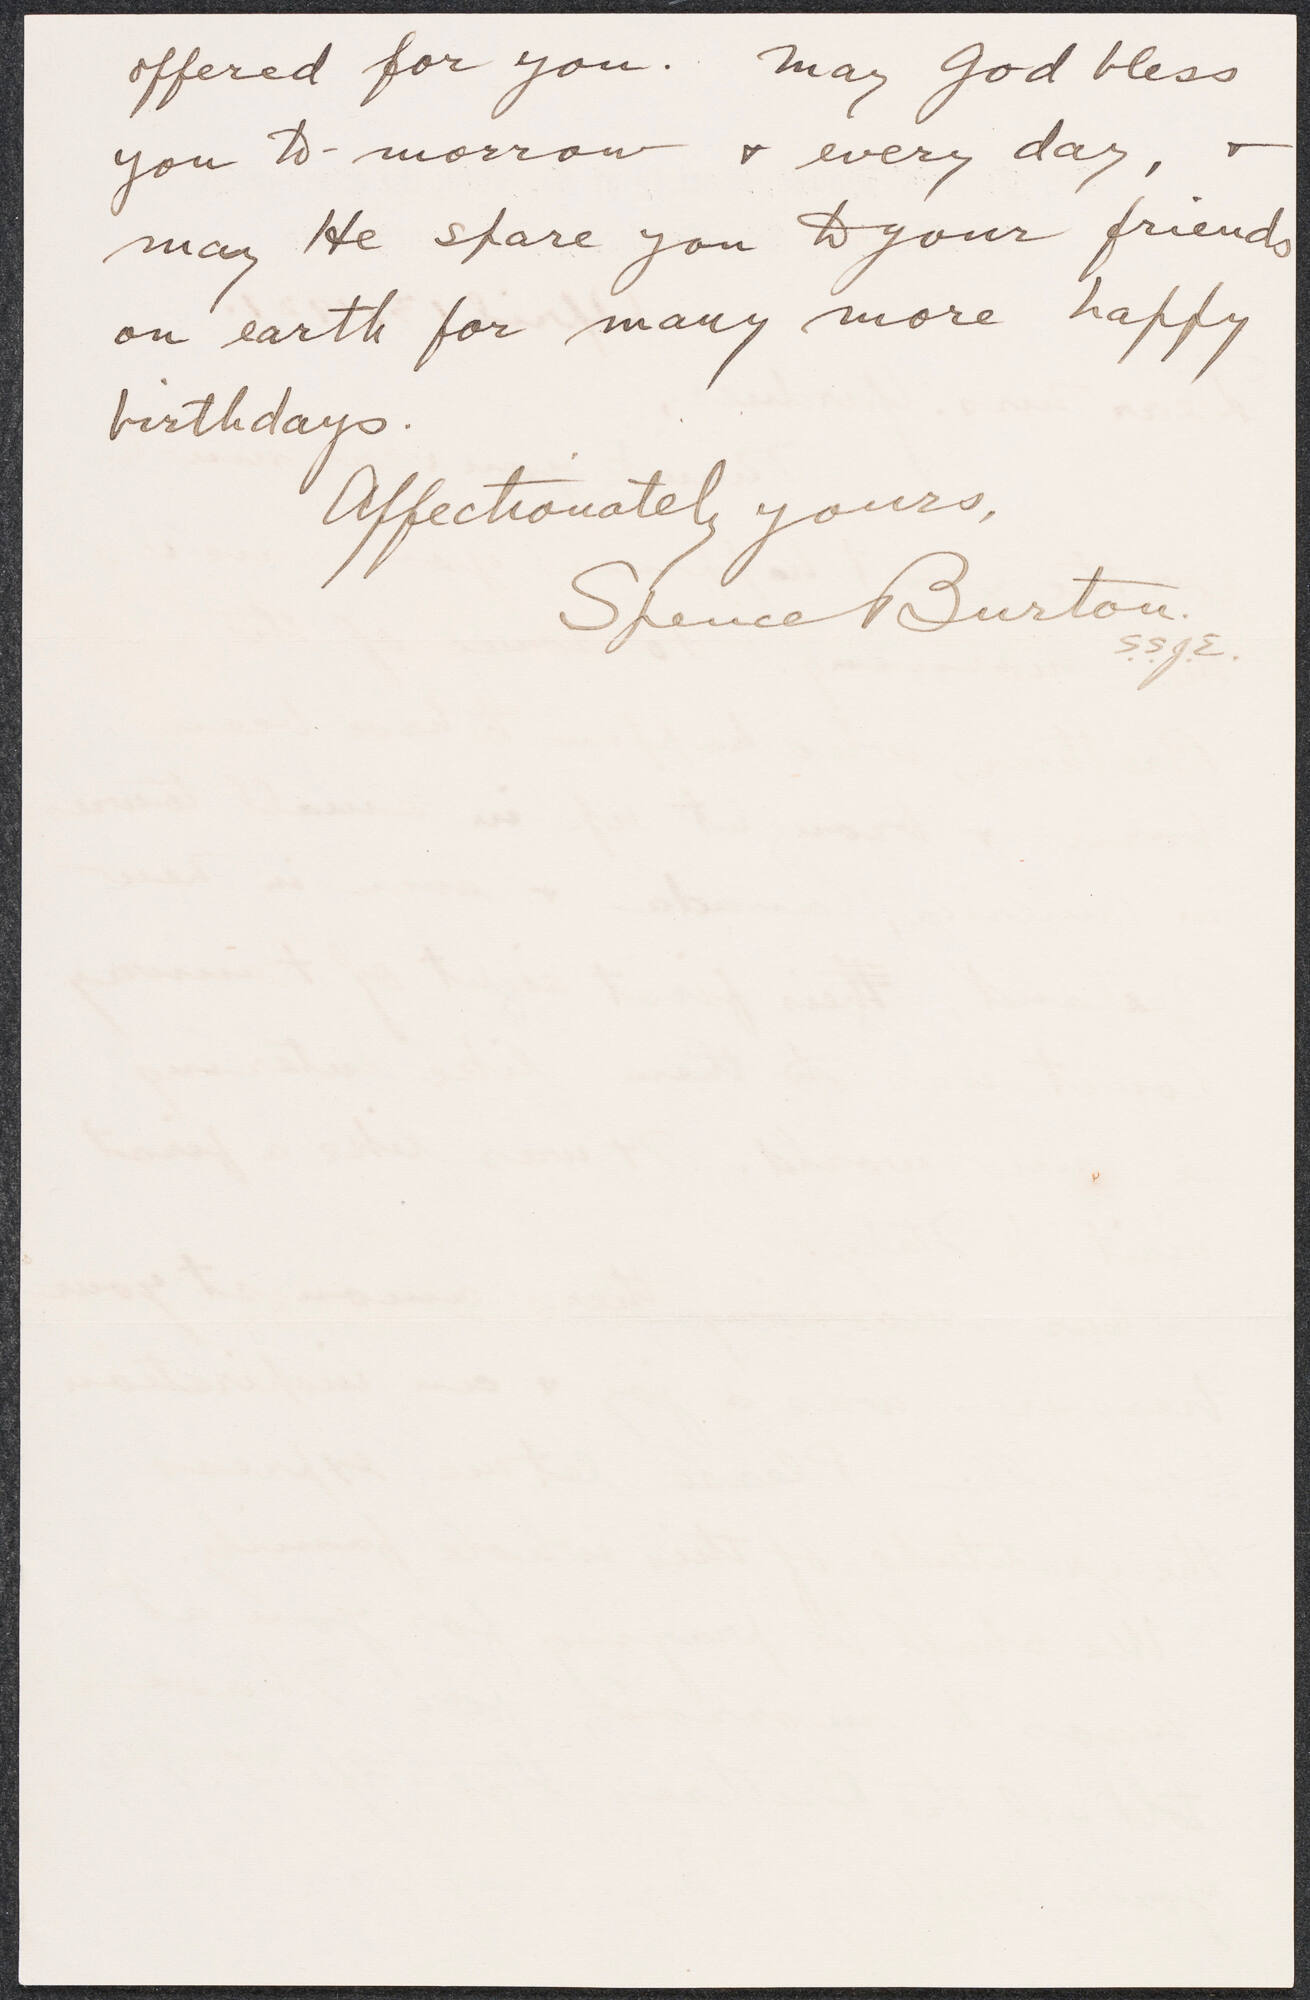 offered for you. May God bless
you to-morrow & every day, &
may He spare you to your friends
on earth for many more happy
birthdays.
Affectionately yours,
Spence Burton.
S.S.J.E.